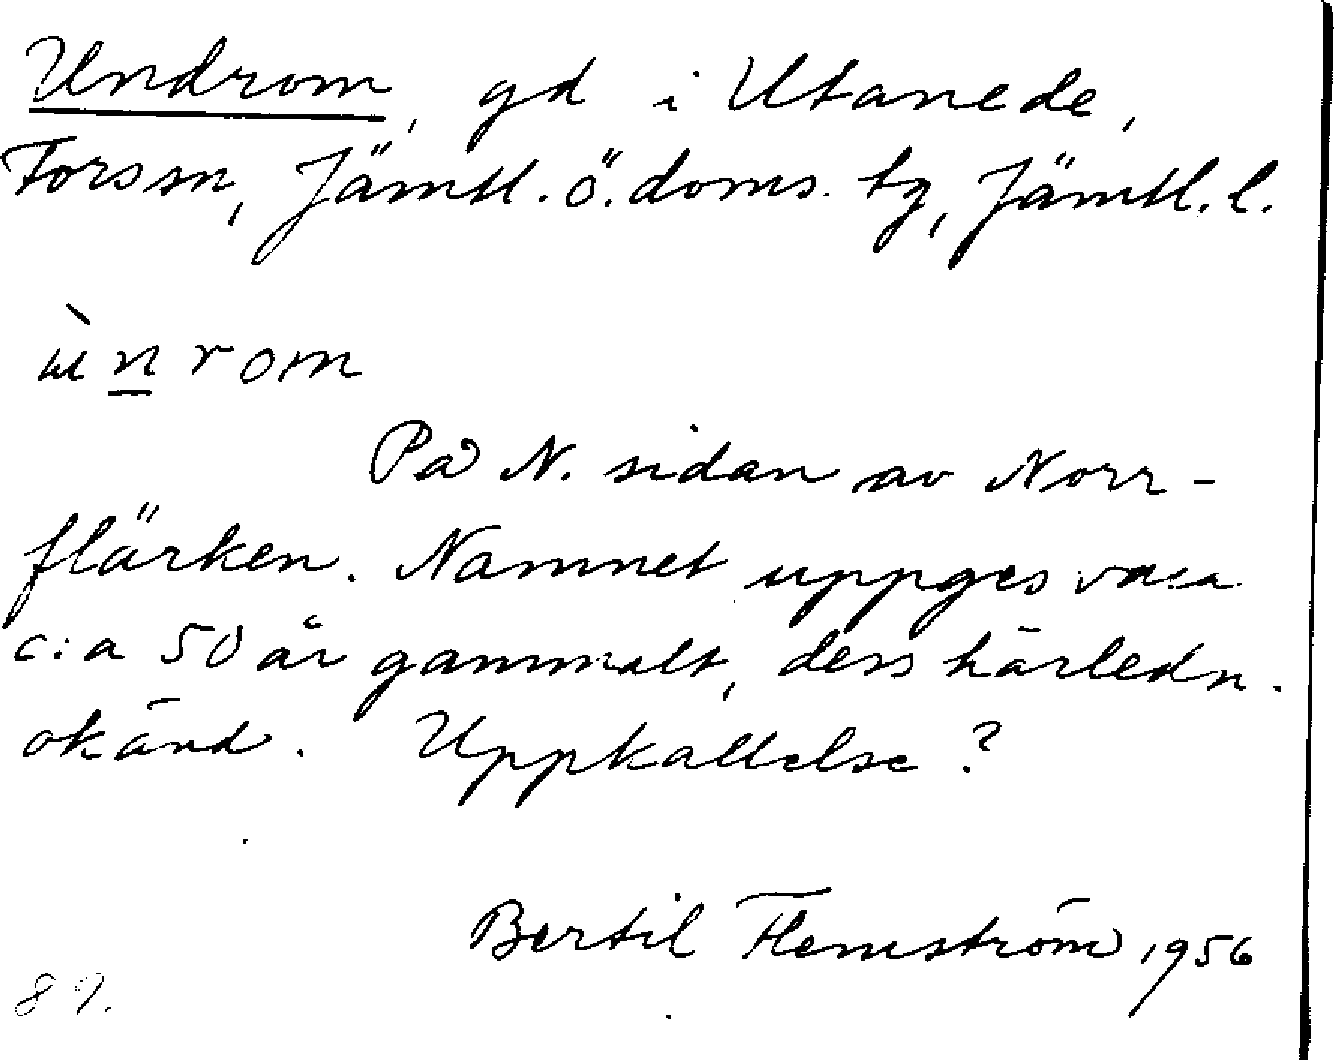 Undrom, gd i Utanede,
Forssn, Jämtl. ö. doms. tg, Jämtl. l.
ùnrom
På N. sidan av Norr-
flärken. Namnet uppges vara
c:a 50 år gammalt, dess härledn.
okänd. Uppkallelse?
Bertil Flemström 1956
89.